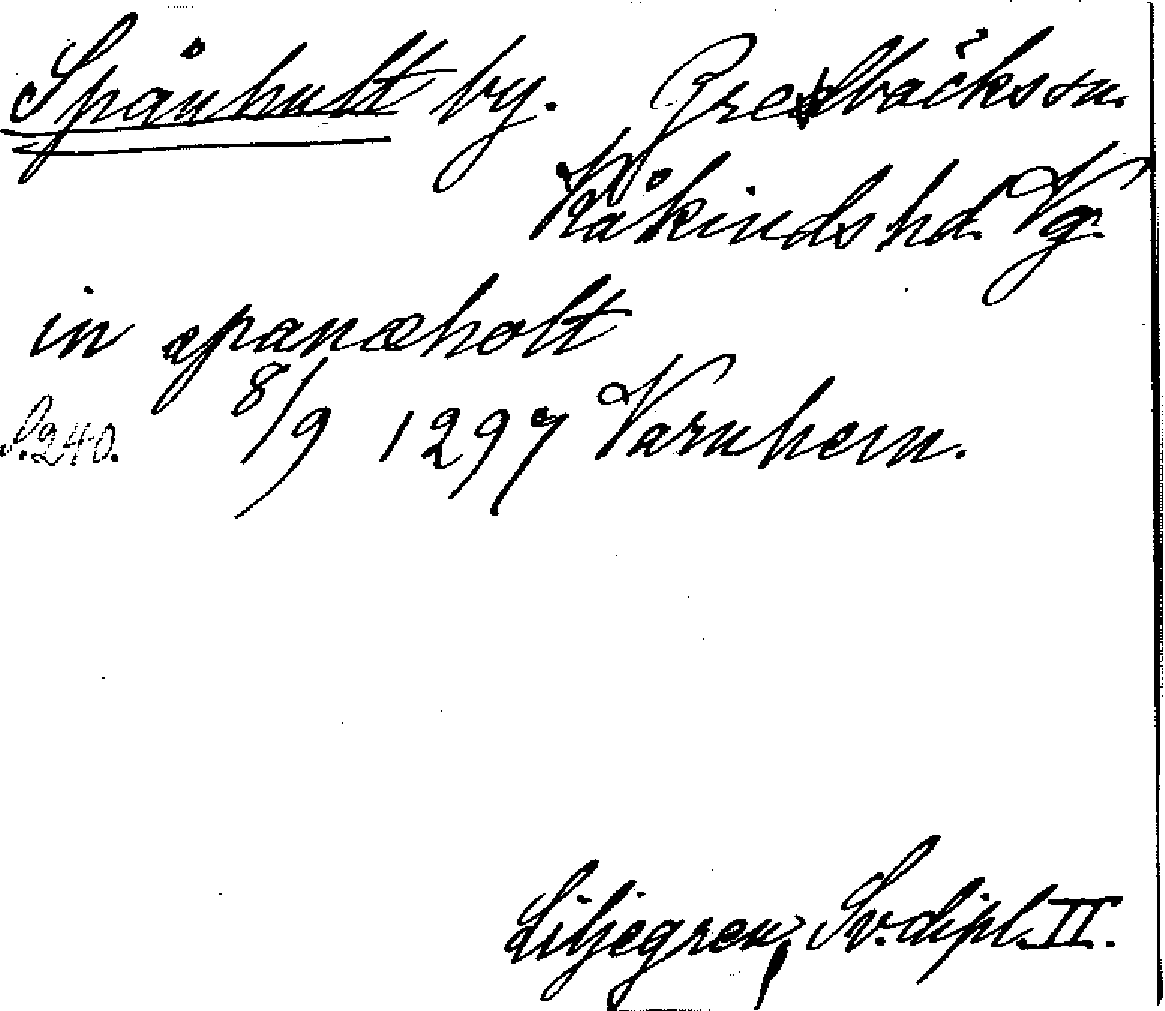 Spånhult by. Fredbäckssn.
Kåkinds hd. Vg.
in spanæholt
S. 240. 8/9 1297 Varnhem.
Liljegren, Sv. dipl. II.